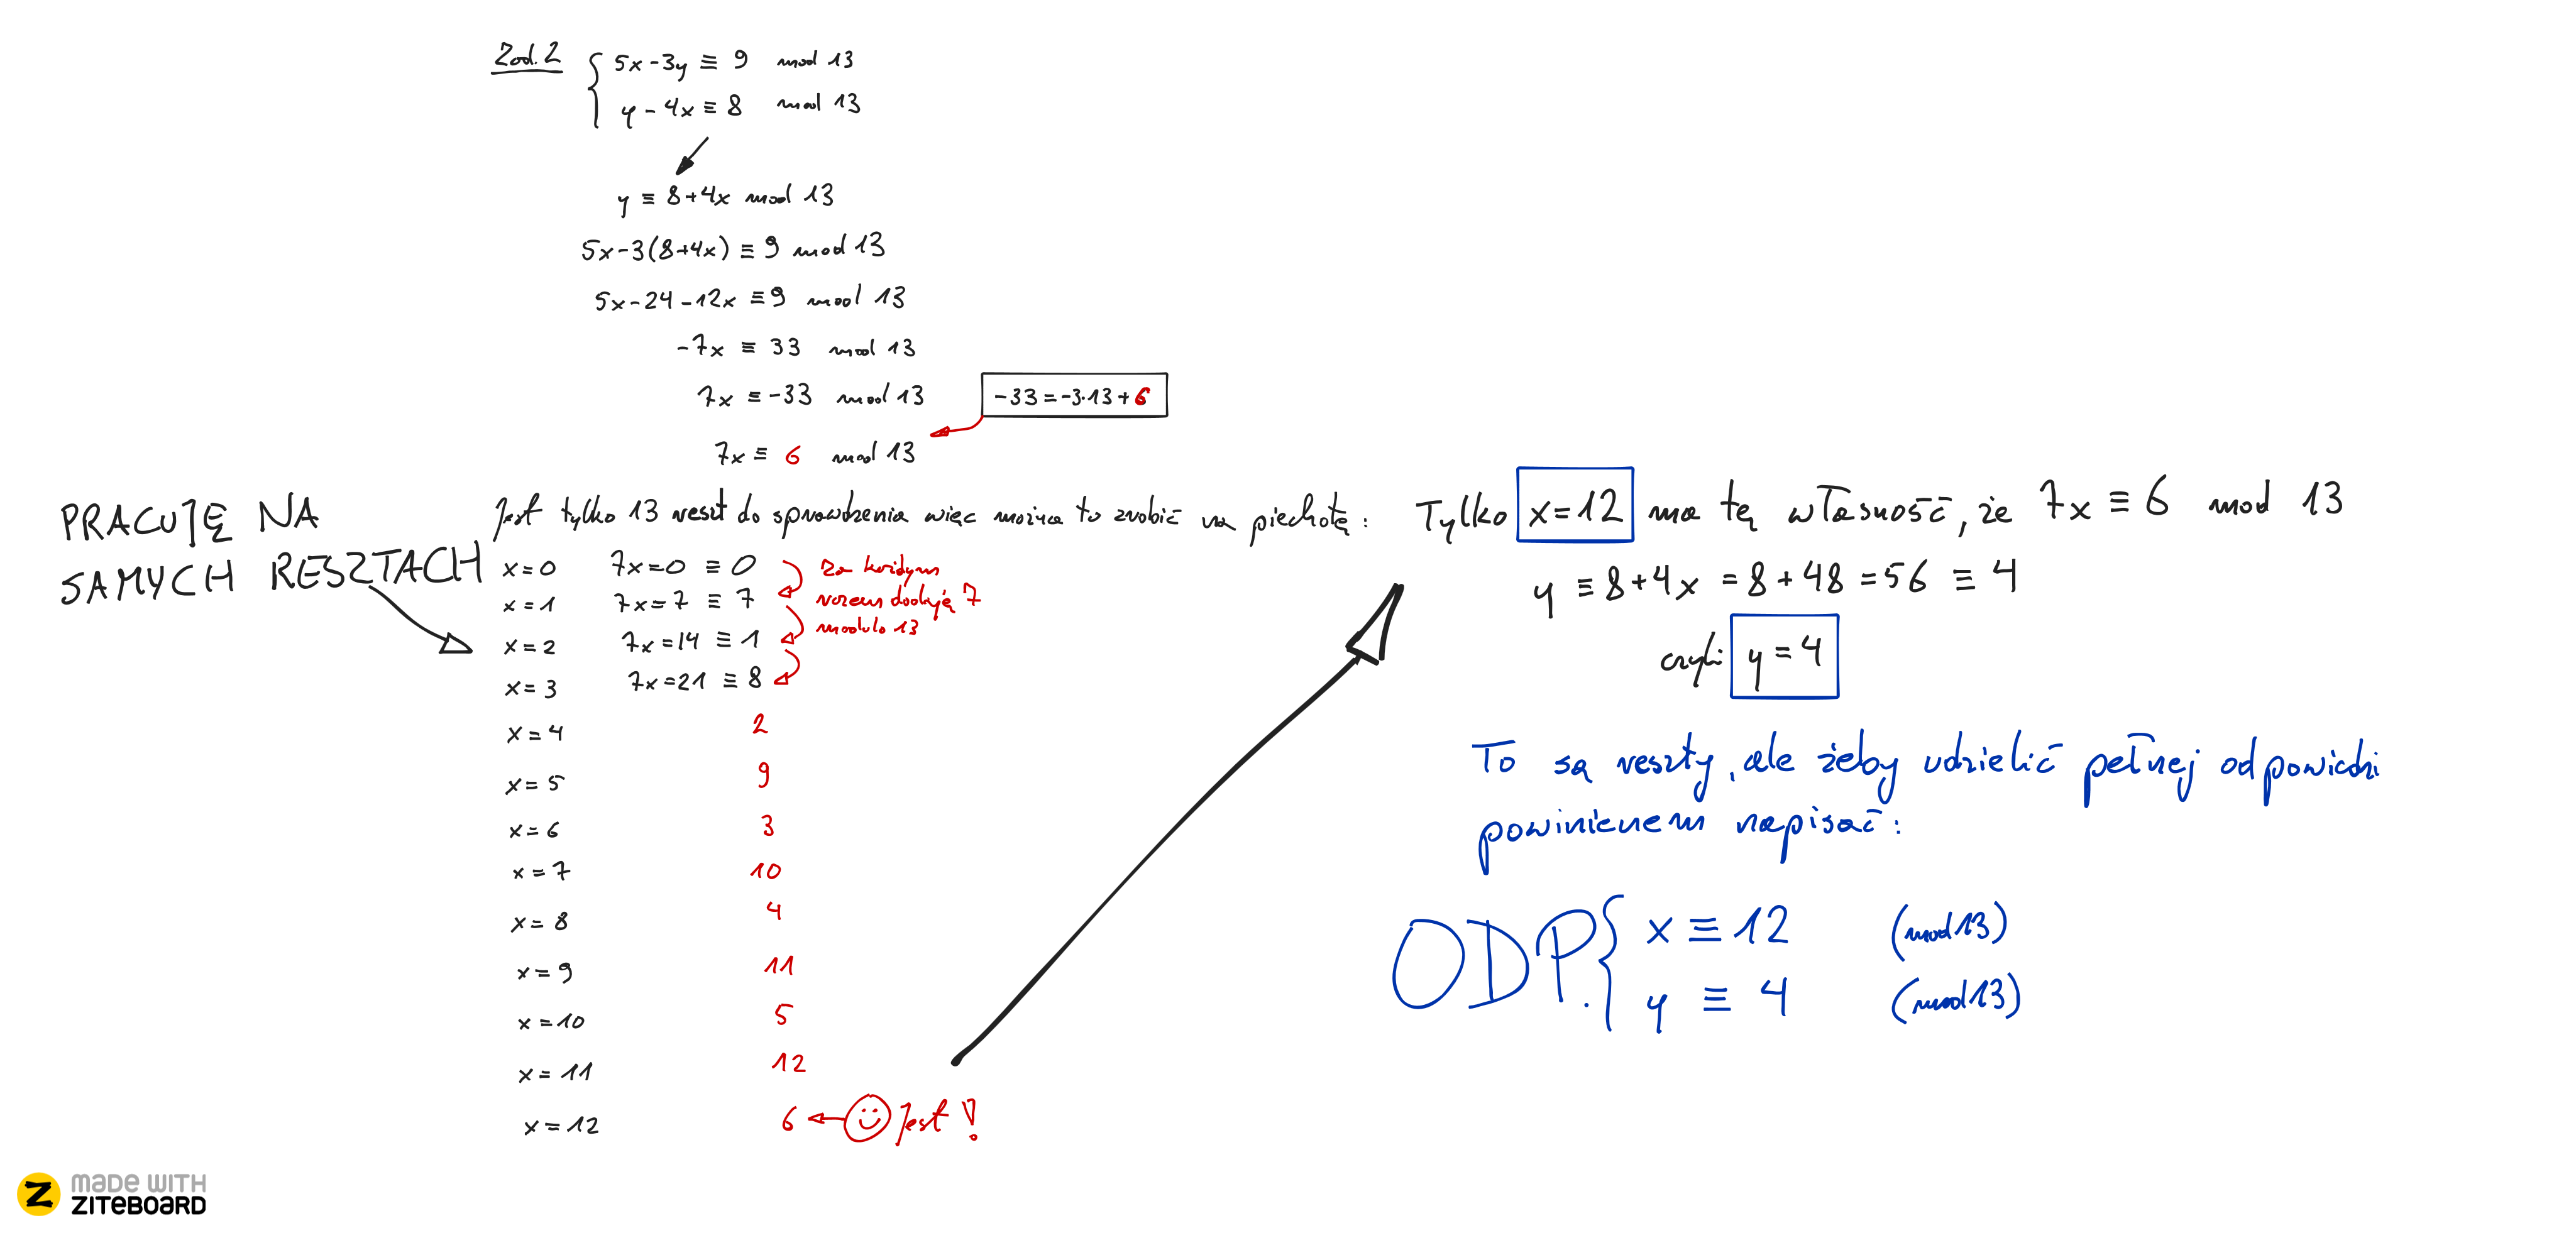 Zad. 2
5x - 3y ≡ 9 mod 13
y - 4x ≡ 8 mod 13
y ≡ 8+4x mod 13
5x-3(8+4x) ≡ 9 mod 13
5x-24-12x ≡ 9 mod 13
-7x ≡ 33 mod 13
7x ≡ -33 mod 13
-33 = -3·13 + 6
7x ≡ 6 mod 13
PRACUJĘ NA
SAMYCH RESZTACH
Jest tylko 13 reszt do sprawdzenia więc można to zrobić na piechotę:
x=0 7x=0 ≡ 0
x=1 7x=7 ≡ 7
x=2 7x=14 ≡ 1
x=3 7x=21 ≡ 8
za każdym
razem dodaję 7
modulo 13
x=4 2
x=5 9
x=6 3
x=7 10
x=8 4
x=9 11
x=10 5
x=11 12
x=12 6 Jest!
Tylko x=12 ma tę własność, że 7x ≡ 6 mod 13
y ≡ 8+4x = 8+48 = 56 ≡ 4
czyli y = 4
To są reszty, ale żeby udzielić pełnej odpowiedzi
powinienem napisać:
ODP. x ≡ 12 (mod 13)
y ≡ 4 (mod 13)
MADE WITH
ZITEBOARD